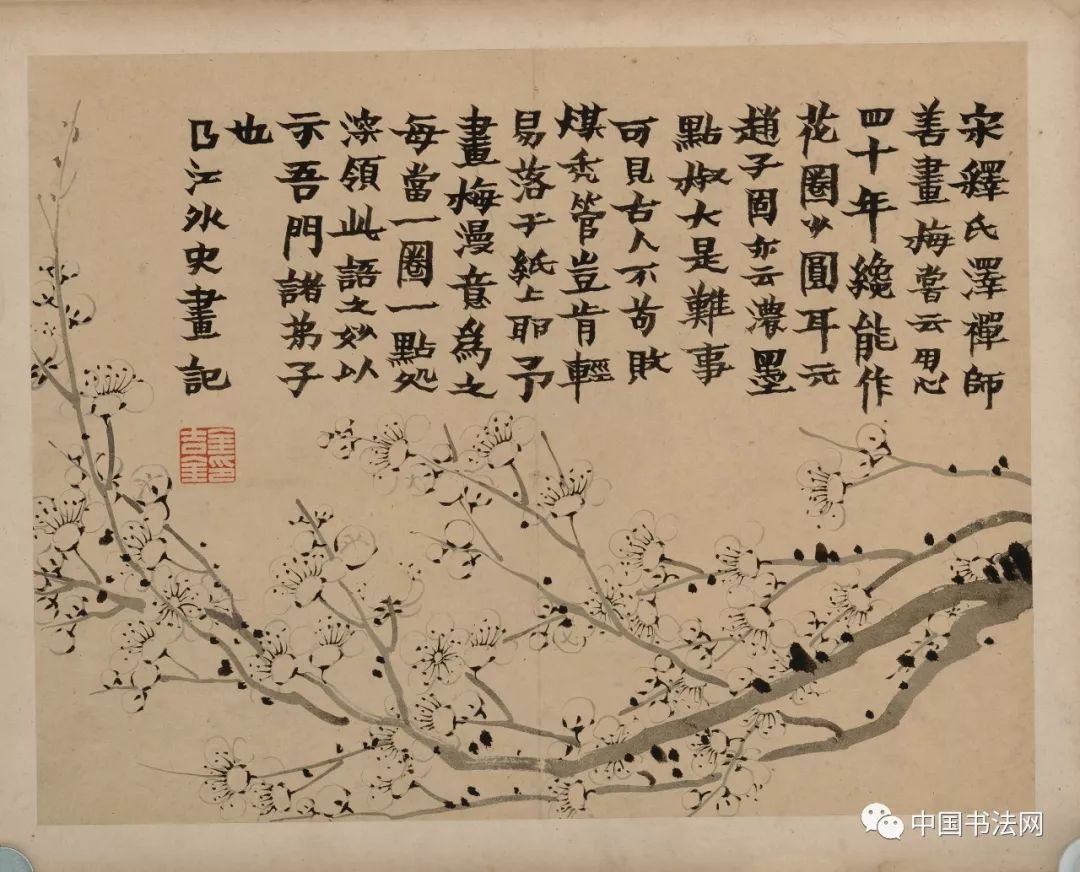 宋釋氏澤禪師
善畫梅嘗云用心
四十年纔能作
花圈少圓耳元
趙子固亦云濃墨
點椒大是難事
可見古人不苟敗
煤禿管豈肯輕
易落于紙上耶予
畫梅漫意為之
每當一圈一點処
深領此語之妙以
示吾門諸弟子
也
曲江外史畫記
金吉金印
中国书法网